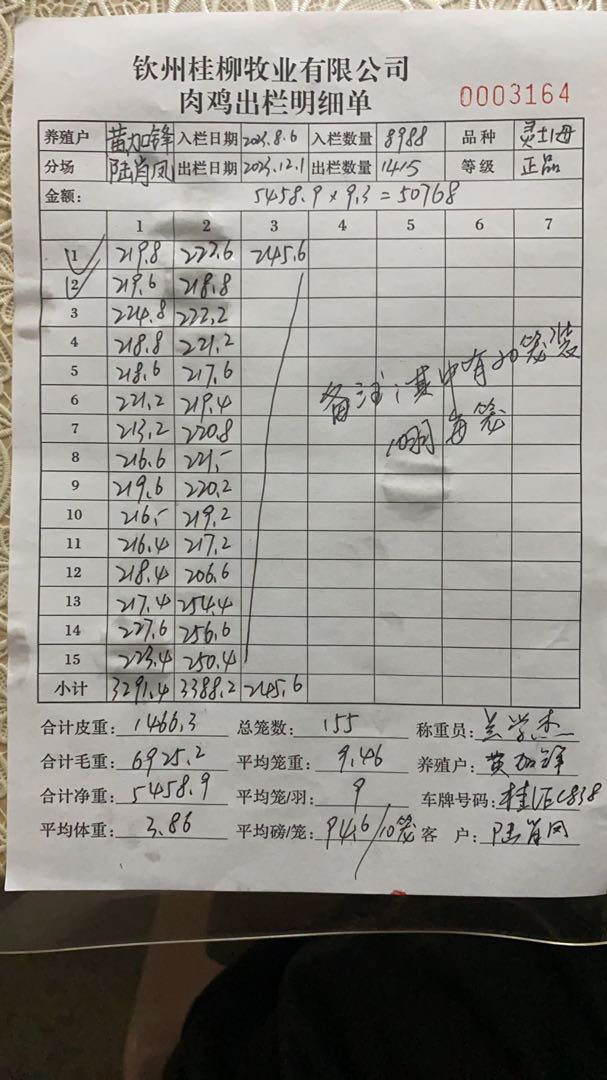 钦州桂柳牧业有限公司
肉鸡出栏明细单 0003164
养殖户 黄加锋 入栏日期 2023.8.6 入栏数量 8988 品种 灵土2母
分场 陆肖凤 出栏日期 2023.12.1 出栏数量 1415 等级 正品
金额: 5458.9 × 9.3 = 50768
1 2 3 4 5 6 7
1 219.8 222.6 245.6
2 219.6 218.8
3 224.8 222.2
4 218.8 221.2
5 218.6 217.6
6 221.2 219.4
7 213.2 220.8
8 216.6 221.-
9 219.6 220.2
10 216.- 219.2
11 216.4 217.2
12 218.4 206.6
13 217.4 254.4
14 227.6 256.6
15 223.4 250.4
备注:其中有20笼装
10羽每笼
小计 3291.4 3388.2 245.6
合计皮重: 1466.3 总笼数: 155 称重员:
合计毛重: 6925.2 平均笼重: 9.46 养殖户: 黄加锋
合计净重: 5458.9 平均笼/羽: 9 车牌号码:
平均体重: 3.86 平均磅/笼: 94.6/10笼 客 户: 陆肖凤